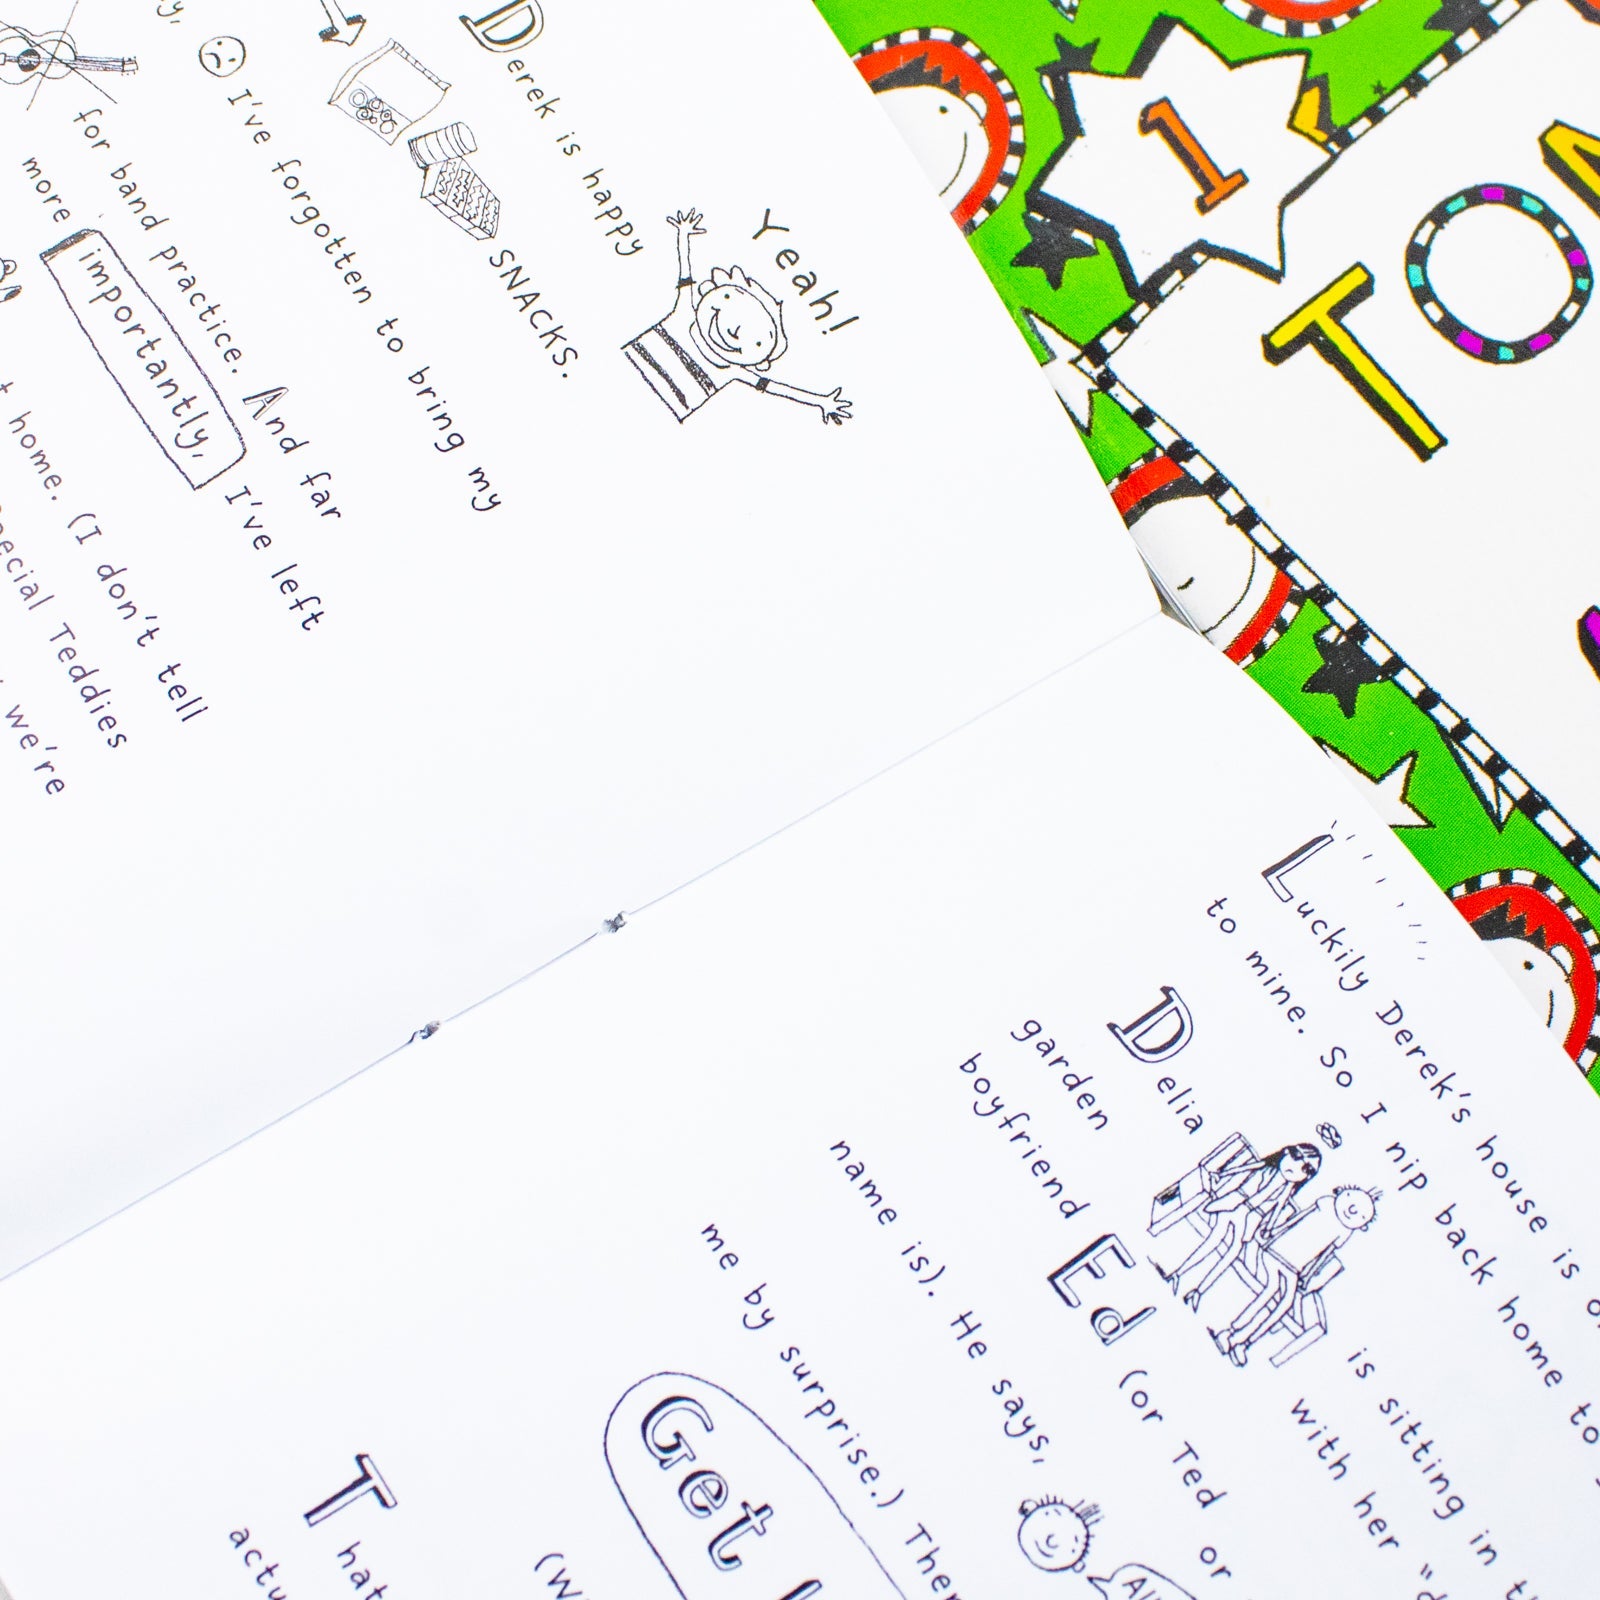 Yeah!
Derek is happy
SNACKS.
I've forgotten to bring my
for band practice. And far
more importantly, I've left
home. (I don't tell
Teddies
we're
Luckily Derek's house is
to mine. So I nip back home to
Delia is sitting in
garden with her
boyfriend Ed (or Ted or
name is). He says,
me by surprise.)
Get
1